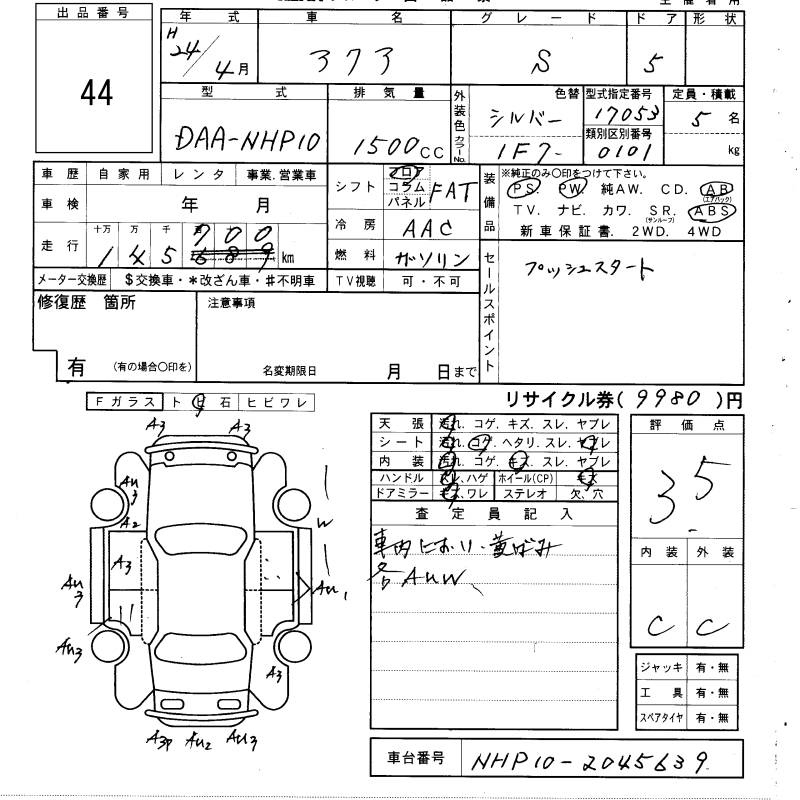 出品番号
44
年式 車名 グレード ドア 形状
H 24/4月 373 S 5
型式 排気量 外装色 カラーNo. 色替 型式指定番号 定員・積載
DAA-NHP10 1500CC シルバー 17053 5名
類別区別番号
1F7- 0101 kg
車歴 自家用 レンタ 事業.営業車
車検 年 月
走行 十万 万 千 百
700
145689km
メーター交換歴 $交換車・*改ざん車・#不明車
シフト フロア コラム パネル FAT
冷房 AAC
燃料 ガソリン
TV視聴 可・不可
装備品
※純正のみ○印をつけて下さい。
PS. PW. 純AW. CD. AB(エアバック)
TV. ナビ. カワ. SR.(サンルーフ) ABS
新車保証書. 2WD. 4WD
セールスポイント
プッシュスタート
修復歴 箇所
有 (有の場合○印を)
注意事項
名変期限日 月 日まで
リサイクル券(9980)円
Fガラス トビ石 ヒビワレ
A3 A3
Au3
A2
A3
W
Au3 Au1
Au3
A3
A3P Au2 Au3
天張 汚れ. コゲ. キズ. スレ. ヤブレ
シート 汚れ. コゲ. ヘタリ. スレ. ヤブレ
内装 汚れ. コゲ. キズ. スレ. ヤブレ
ハンドル スレ、ハゲ ホイール(CP) キズ
ドアミラー キズ、ワレ ステレオ 欠、穴
査定員記入
車内におい・黄ばみ
各AUW、
評価点
3.5
内装 外装
C C
ジャッキ 有・無
工具 有・無
スペアタイヤ 有・無
車台番号 NHP10-2045639